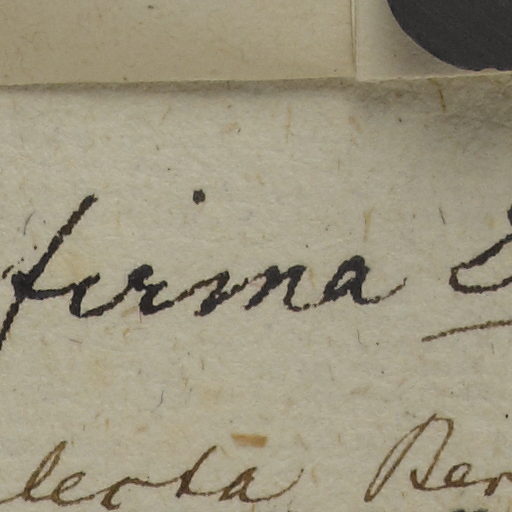 firma
lecta Ber